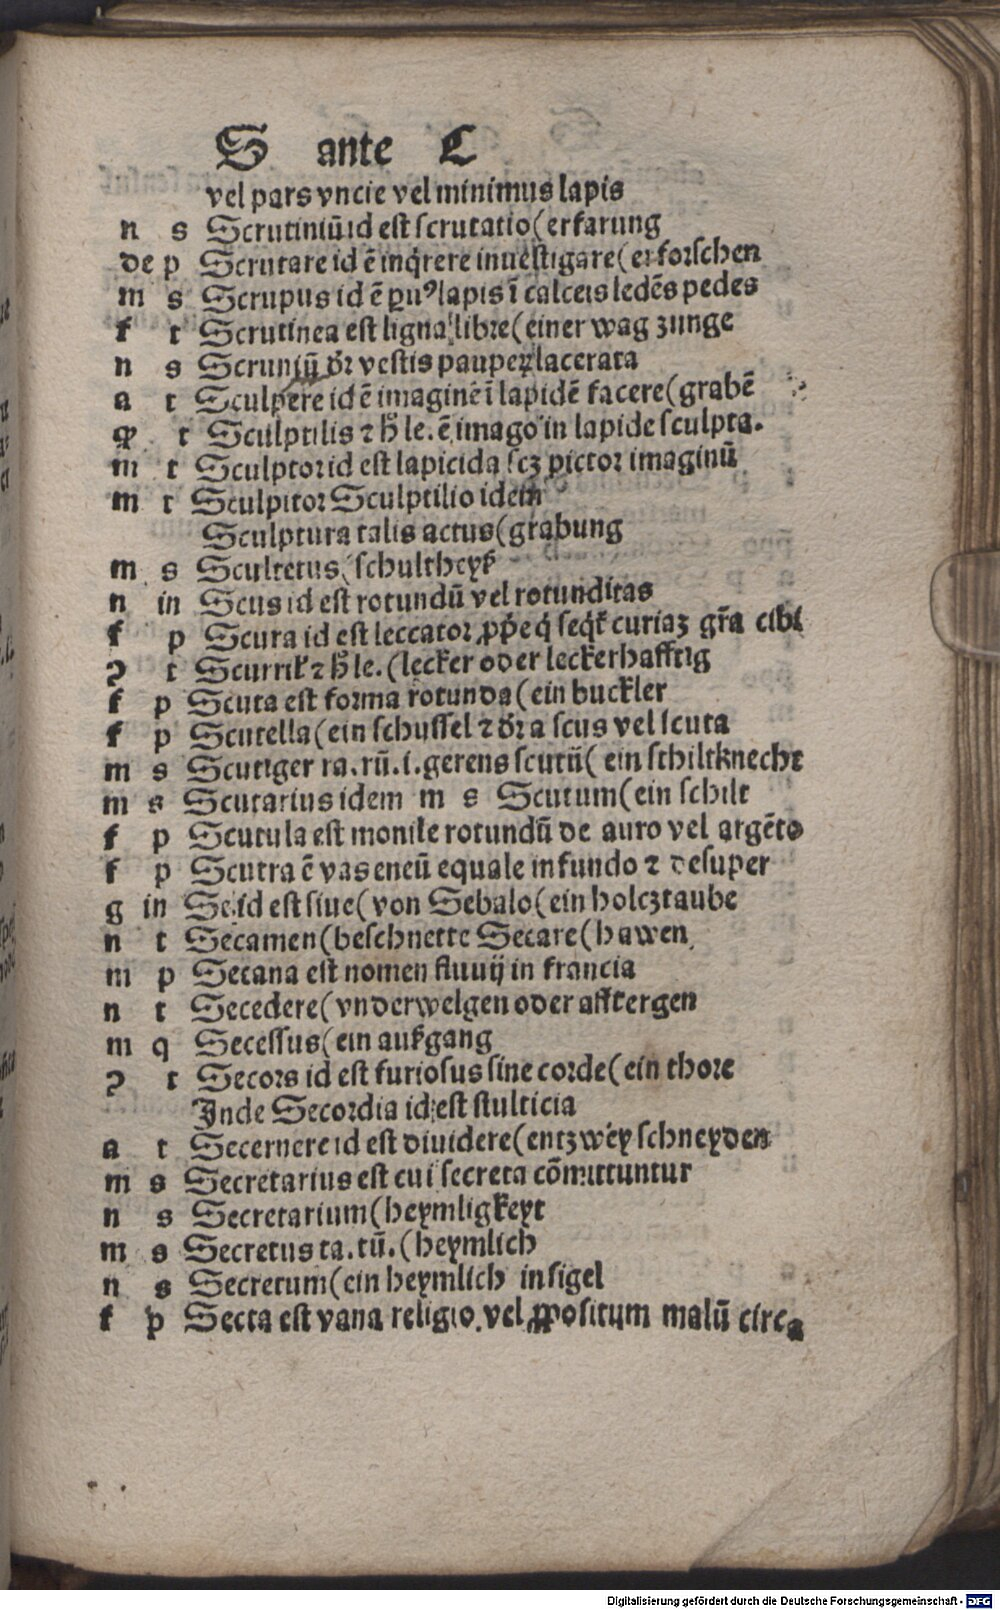 S ante C
vel pars vncie vel minimus lapis
n s Scrutiniū id est scrutatio (erfarung
de p Scrutare id ē inq̄rere inuestigare (erforschen
m s Scrupus id ē ꝑuꝰ lapis ī calceis ledēs pedes
f t Scrutinea est ligna libre (einer wag zunge
n s Scruniū dr̄ vestis pauperꝝ lacerata
a t Sculpere id ē imaginē ī lapidē facere (grabē
t Sculptilis ⁊ h̄ le. ē imago in lapide sculpta.
m t Sculptor id est lapicida scꝫ pictor imaginū
m t Sculpitor Sculptilio idem
Sculptura talis actus (grabung
m s Scultetus (schultheyß
n in Scus id est rotundū vel rotunditas
f p Scura id est leccator ꝓpe q̄ seqt̄ curiaꝫ gr̄a cibi
ꝯ t Scurril' ⁊ h̄ le. (lecker oder leckerhafftig
f p Scuta est forma rotunda (ein buckler
f p Scutella (ein schussel ⁊ dr̄ a scus vel scuta
m s Scutiger ra. rū. i. gerens scutū (ein schiltknecht
m s Scutarius idem m s Scutum (ein schilt
f p Scutula est monile rotundū de auro vel argēto
f p Scutra ē vas eneū equale in fundo ⁊ desuper
g in Se id est siue (von Sebalo (ein holcztaube
n t Secamen (beschnette Secare (hawen
m p Secana est nomen fluuij in francia
n t Secedere (vnderwelgen oder afftergen
m q Secessus (ein außgang
ꝯ t Secors id est furiosus sine corde (ein thore
Inde Secordia id est stulticia
a t Secernere id est diuidere (entzwey schneyden
m s Secretarius est cui secreta cōmittuntur
n s Secretarium (heymligkeyt
m s Secretus ta. tū. (heymlich
n s Secretum (ein heymlich insigel
f p Secta est vana religio vel ꝓpositum malū circa
Digitalisierung gefördert durch die Deutsche Forschungsgemeinschaft - DFG